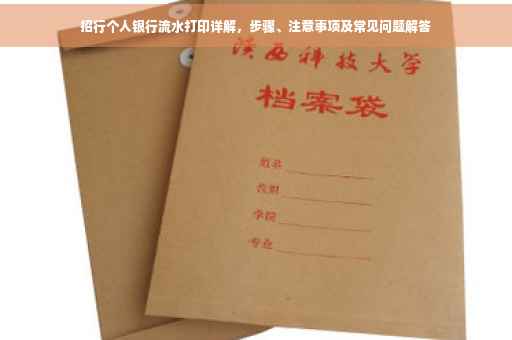 招行个人银行流水打印详解，步骤、注意事项及常见问题解答
陕西科技大学
档案袋
姓名
学院
专业